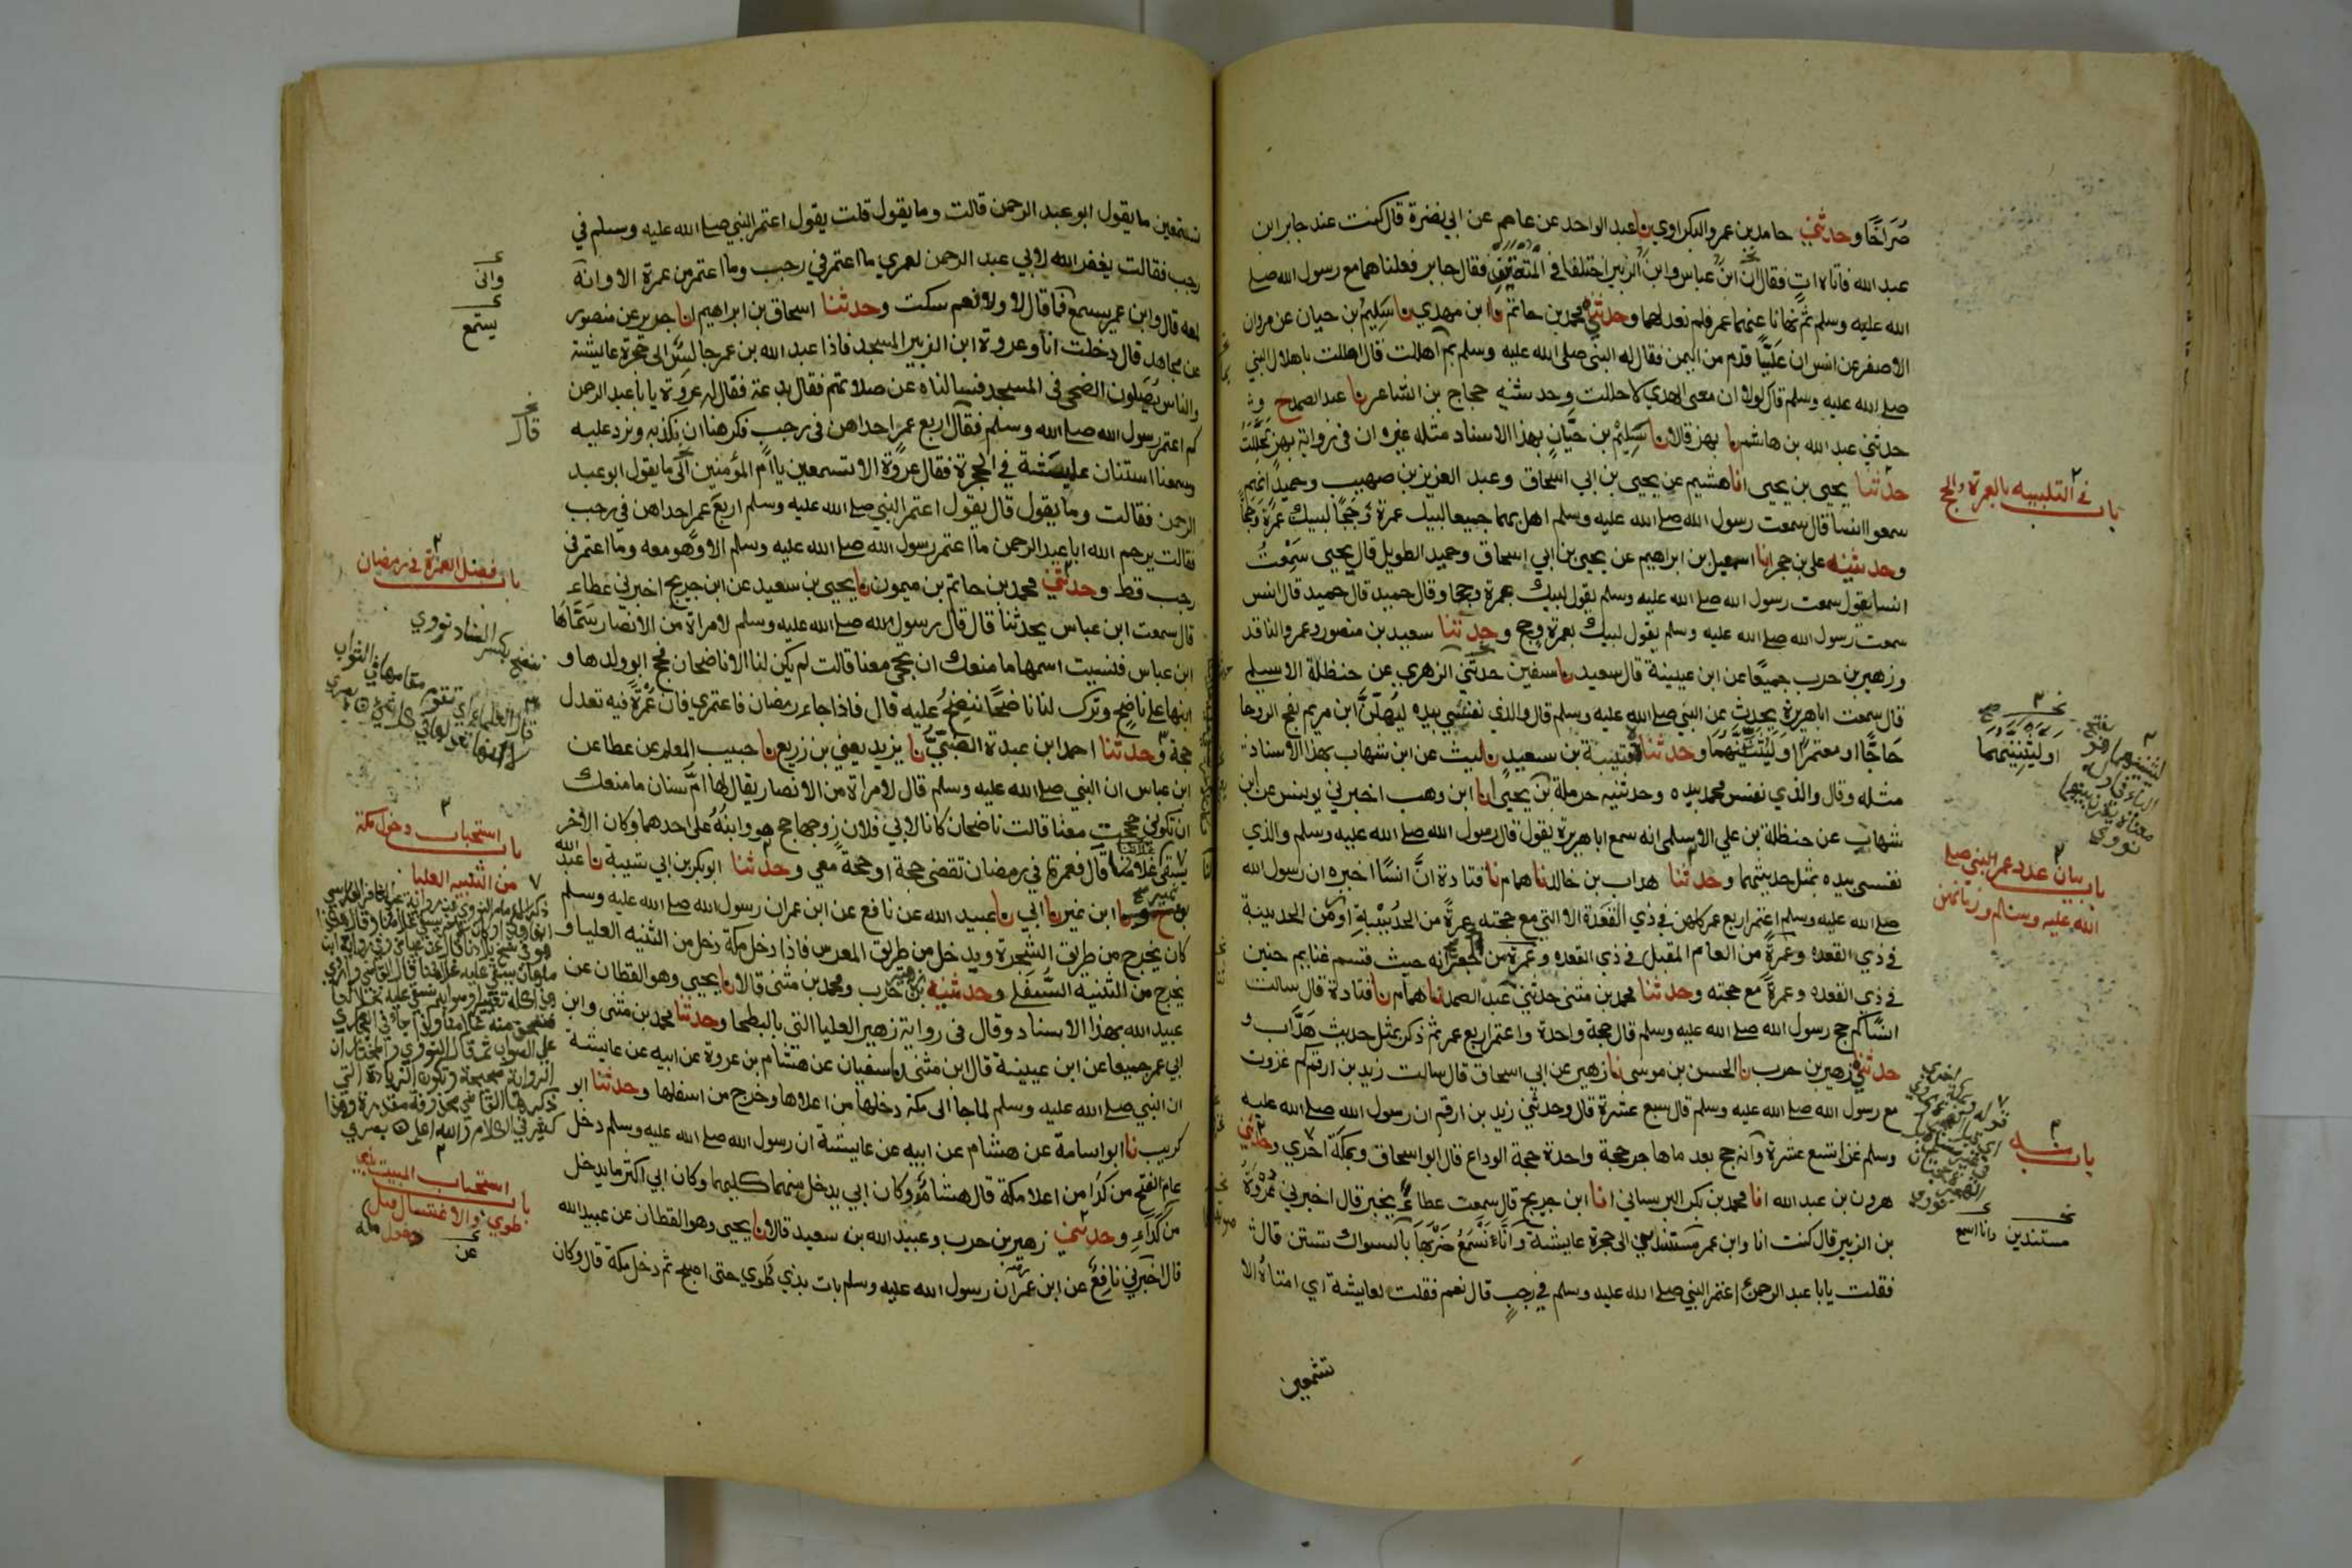 صُرَاخًا وحدثني حامد بن عمر والبكراوي نا عبد الواحد عن عاصم عن ابي نضرة قال كنت عند جابر ابن
عبد الله فاتاه اتٍ فقال ان ابن عباس وابن الزبير اختلفا في المتعتين فقال جابر فعلناهما مع رسول الله صلى
الله عليه وسلم ثم نهانا عنهما عمر فلم نعد لهما وحدثني محمد بن حاتم نا ابن مهدي نا سَلِيم بن حيان عن مروان
الاصفر عن انس ان عَليًّا قدم من اليمن فقال له النبي صلى الله عليه وسلم بم اهللت قال اهللت باهلال النبي
صلى الله عليه وسلم قال لولا ان معي الهدي لاحللت وحدثنيه حجاج بن الشاعر نا عبد الصمد ح وثـ
حدثني عبد الله بن هاشم نا بهز قالا نا سَلِيْمُ بن حَيَّانٍ بهذا الاسناد مثله غير ان في رواية بهز لَحَلَلْتُ
حدثنا يحيى بن يحيى انا هشيم عن يحيى بن ابي اسحاق وعبد العزيز بن صهيب وحميدٍ انهم
سمعوا انسا قال سمعت رسول الله صلى الله عليه وسلم اهل بهما جميعا لبيك عمرة وحجا لبيك عمرة وحجا
وحدثنيه علي بن حجر انا اسمعيل بن ابراهيم عن يحيى بن ابي اسحاق وحميد الطويل قال يحيى سَمِعْتُ
انسا يقول سمعت رسول الله صلى الله عليه وسلم يقول لبيك بعمرة وحجا وقال حميد قال حميد قال انس
سمعت رسول الله صلى الله عليه وسلم يقول لبيك بعمرة وحج وحدثنا سعيد بن منصور وعمرو الناقد
وزهير بن حرب جميعًا عن ابن عيينة قال سعيد نا سفين حدثني الزهري عن حنظلة الاسلمي
قال سمعت ابا هريرة يحدث عن النبي صلى الله عليه وسلم قال والذي نفسي بيده ليُهِلَّنَّ ابن مريم بفج الروحا
حَاجًّا او معتمرًا او لَيَثْنِيَنَّهُمَا وحدثنا قتيبة بن سعيدٍ نا ليث عن ابن شهاب بهذا الاسناد
مثله وقال والذي نفس محمد بيده وحدثنيه حرملة بن يحيى انا ابن وهب اخبرني يونس عن ابن
شهاب عن حنظلة بن علي الاسلمي انه سمع ابا هريرة يقول قال رسول الله صلى الله عليه وسلم والذي
نفسي بيده بمثل حديثهما وحدثنا هداب بن خالد نا همام نا قتادة انَّ انسًا اخبره ان رسول الله
صلى الله عليه وسلم اعتمر اربع عمر كلهن في ذي القعدة الا التي مع حجته عمرةً من الحُدَيْبِيَةِ او زمن الحديبية
في ذي القعده وعمرةً من العام المقبل في ذي القعده وعمرة من الجعرانه حيث قسم غنايم حنين
في ذي القعده وعمرةً مع حجته وحدثنا محمد بن مثنى حدثني عبد الصمد نا همام نا قتادة قال سالت
انسًا كم حج رسول الله صلى الله عليه وسلم قال حجة واحدة واعتمر اربع عمر ثم ذكر بمثل حديث هَدَّاب و
حدثني زهير بن حرب نا الحسن بن موسى نا زهير عن ابي اسحاق قال سالت زيد بن ارقم كم غزوت
مع رسول الله صلى الله عليه وسلم قال سبع عشرة قال وحدثني زيد بن ارقم ان رسول الله صلى الله عليه
وسلم غزا تسع عشرة وانه حج بعد ما هاجر حجة واحدة حجة الوداع قال ابو اسحاق وبمكة اخري وحدثني
هرون بن عبد الله انا محمد بن بكر البرساني انا ابن جريج قال سمعت عطاءً يخبر قال اخبرني عُرْوَةُ
بن الزبير قال كنت انا وابن عمر مستندين الى حجرة عايشة وَانَّا نَسْمَعُ ضَرْبَهَا بالسواك تستن قال
فقلت يابا عبد الرحمن اعتمر النبي صلى الله عليه وسلم في رجبٍ قال نعم فقلت لعايشة اي امتاهُ الا
تسمعين
باب في التلبيه بالعمرة والحج
اوليثنينهما
باب بيان عدد عمر النبي صلى
الله عليه وسلم وزمانهن
باب منه
مستندين وانا اسمع
تستمعين ما يقول ابو عبد الرحمن قالت وما يقول قلت يقول اعتمر النبي صلى الله عليه وسلم في
رجب فقالت يغفر الله لابي عبد الرحمن لعمري ما اعتمر في رجب وما اعتمر من عمرة الا وانه
لمعه قال وابن عمر يسمع فما قال لا ولا نعم سكت وحدثنا اسحاق بن ابراهيم انا جرير عن منصور
عن مجاهد قال دخلت انا وعروة ابن الزبير المسجد فاذا عبد الله بن عمر جالس الى حجرة عايشة
والناس يُصَلون الضحى في المسجد فسالناه عن صلاتهم فقال بدعة فقال له عروة يا باعبد الرحمن
كم اعتمر رسول الله صلى الله وسلم فقال اربع عمرٍ احداهن في رجب فكرهنا ان نكذبه ونرد عليه
وسمعنا استنان عايشة في الحجرة فقال عروة الا تسمعين يا ام المؤمنين الى ما يقول ابو عبد
الرحمن فقالت وما يقول قال يقول اعتمر النبي صلى الله عليه وسلم اربع عمر احداهن في رجب
فقالت يرحم الله ابا عبد الرحمن ما اعتمر رسول الله صلى الله عليه وسلم الا وهو معه وما اعتمر في
رجب قط وحدثني محمد بن حاتم بن ميمون نا يحيى بن سعيد عن ابن جريج اخبرني عطاء
قال سمعت ابن عباس يحدثنا قال قال رسول الله صلى الله عليه وسلم لامراة من الانصار سَمَّاهَا
ابن عباس فنسيت اسمها ما منعك ان تحجي معنا قالت لم يكن لنا الا ناضحان فحج ابو ولدها و
ابنها على ناضح وترك لنا ناضحًا ننضِحُ عليه قال فاذا جاء رمضان فاعتمري فان عُمْرَةً فيه تعدل
حجة وحدثنا احمد ابن عبدة الضَّبيُّ نا يزيد يعني بن زريع نا حبيب المعلم عن عطا عن
ابن عباس ان النبي صلى الله عليه وسلم قال لامراة من الانصار يقال لها امُّ سنان ما منعك
ان تكوني حججت معنا قالت ناضحان كانا لابي فلان زوجها حج هو وابنُهُ على احدهما وكان الاخر
يسقي غلامنا قال فعمرة في رمضان تقضي حجة او حجة معي وحدثنا ابو بكر بن ابي شيبة نا عبد الله
ابن نمير نا ابي نا عبيد الله عن نافع عن ابن عمر ان رسول الله صلى الله عليه وسلم
كان يخرج من طريق الشجرة ويدخل من طريق المعرس فاذا دخل مكة دخل من الثنيه العليا و
يخرج من الثنيه السُّفلى وحدثنيه زهير بن حرب ومحمد بن مثنى قالا نا يحيى وهو القطان عن
عبيد الله بهذا الاسناد وقال في رواية زهير العليا التي بالبطحا وحدثنا محمد بن مثنى وابن
ابي عمر جميعا عن ابن عيينة قال ابن مثنى نا سفيان عن هشام بن عروة عن ابيه عن عايشة
ان النبي صلى الله عليه وسلم لما جا الى مكة دخلها من اعلاها وخرج من اسفلها وحدثنا ابو
كريب نا ابو اسامة عن هشام عن ابيه عن عايشة ان رسول الله صلى الله عليه وسلم دخل
عام الفتح من كدا من اعلا مكة قال هشام وكان ابي يدخل منهما كليهما وكان ابي اكثر ما يدخل
من كَدَاءٍ وحدثني زهير بن حرب وعبيد الله بن سعيد قالا نا يحيى وهو القطان عن عبيد الله
قال اخبرني نافع عن ابن عمر ان رسول الله عليه وسلم بات بذي طوي حتى اصبح ثم دخل مكة قال وكان
واني
يستمع
قال
باب فضل العمرة في رمضان
ننضح بكسر الضاد نووي
باب استحباب دخول مكة
من الثنيه العليا
باب استحباب المبيت بذي
طوي والاغتسال قبل
دخول مكة
عن